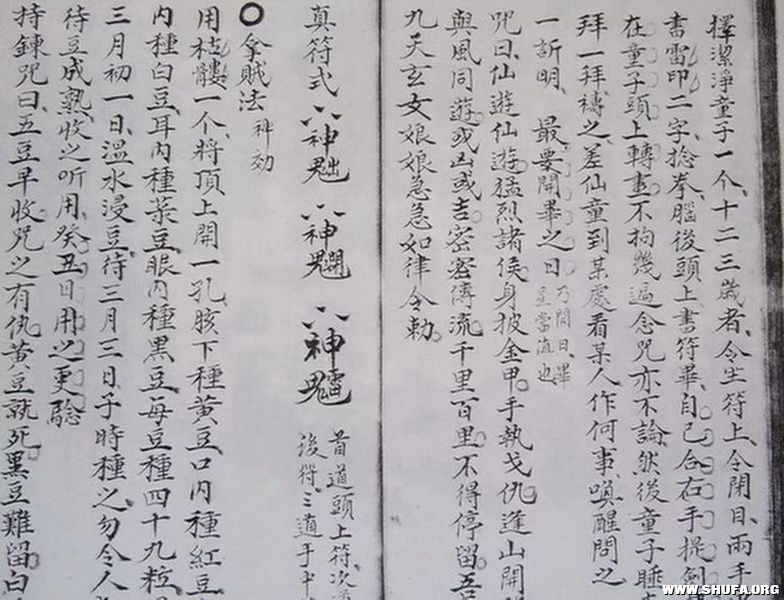 擇潔淨童子一个、十二三歲者、令坐符上、令閉目、兩手
書雷印二字、捻拳、腦後頭上書符畢、自己合右手提劍
在童子頭上轉畫、不拘幾遍、念咒亦不論、然後童子睡
拜一拜禱之、差仙童到某處看某人作何事、喚醒問之
一訢明、最要開畢之日乃開日、畢星當值也
咒曰、仙遊仙遊、猛烈諸侯、身披金甲、手執戈仇、逢山開
與風同遊、或凶或吉、密密傳流、千里百里、不得停留、吾
九天玄女娘娘急急如律令勅
真符式 首道頭上符、次道
後符、三道于中
○拿賊法 神効
用枯髏一个、將頂上開一孔、胲下種黃豆、口內種紅豆
內種白豆、耳內種菉豆、眼內種黑豆、每豆種四十九粒
三月初一日、溫水浸豆、待三月三日子時種之、勿令人
待豆成熟收之听用、癸丑日用之更驗
持鍊咒曰、五豆早收、咒之有仇、黃豆就死、黑豆難留、白
WWW.SHUFA.ORG